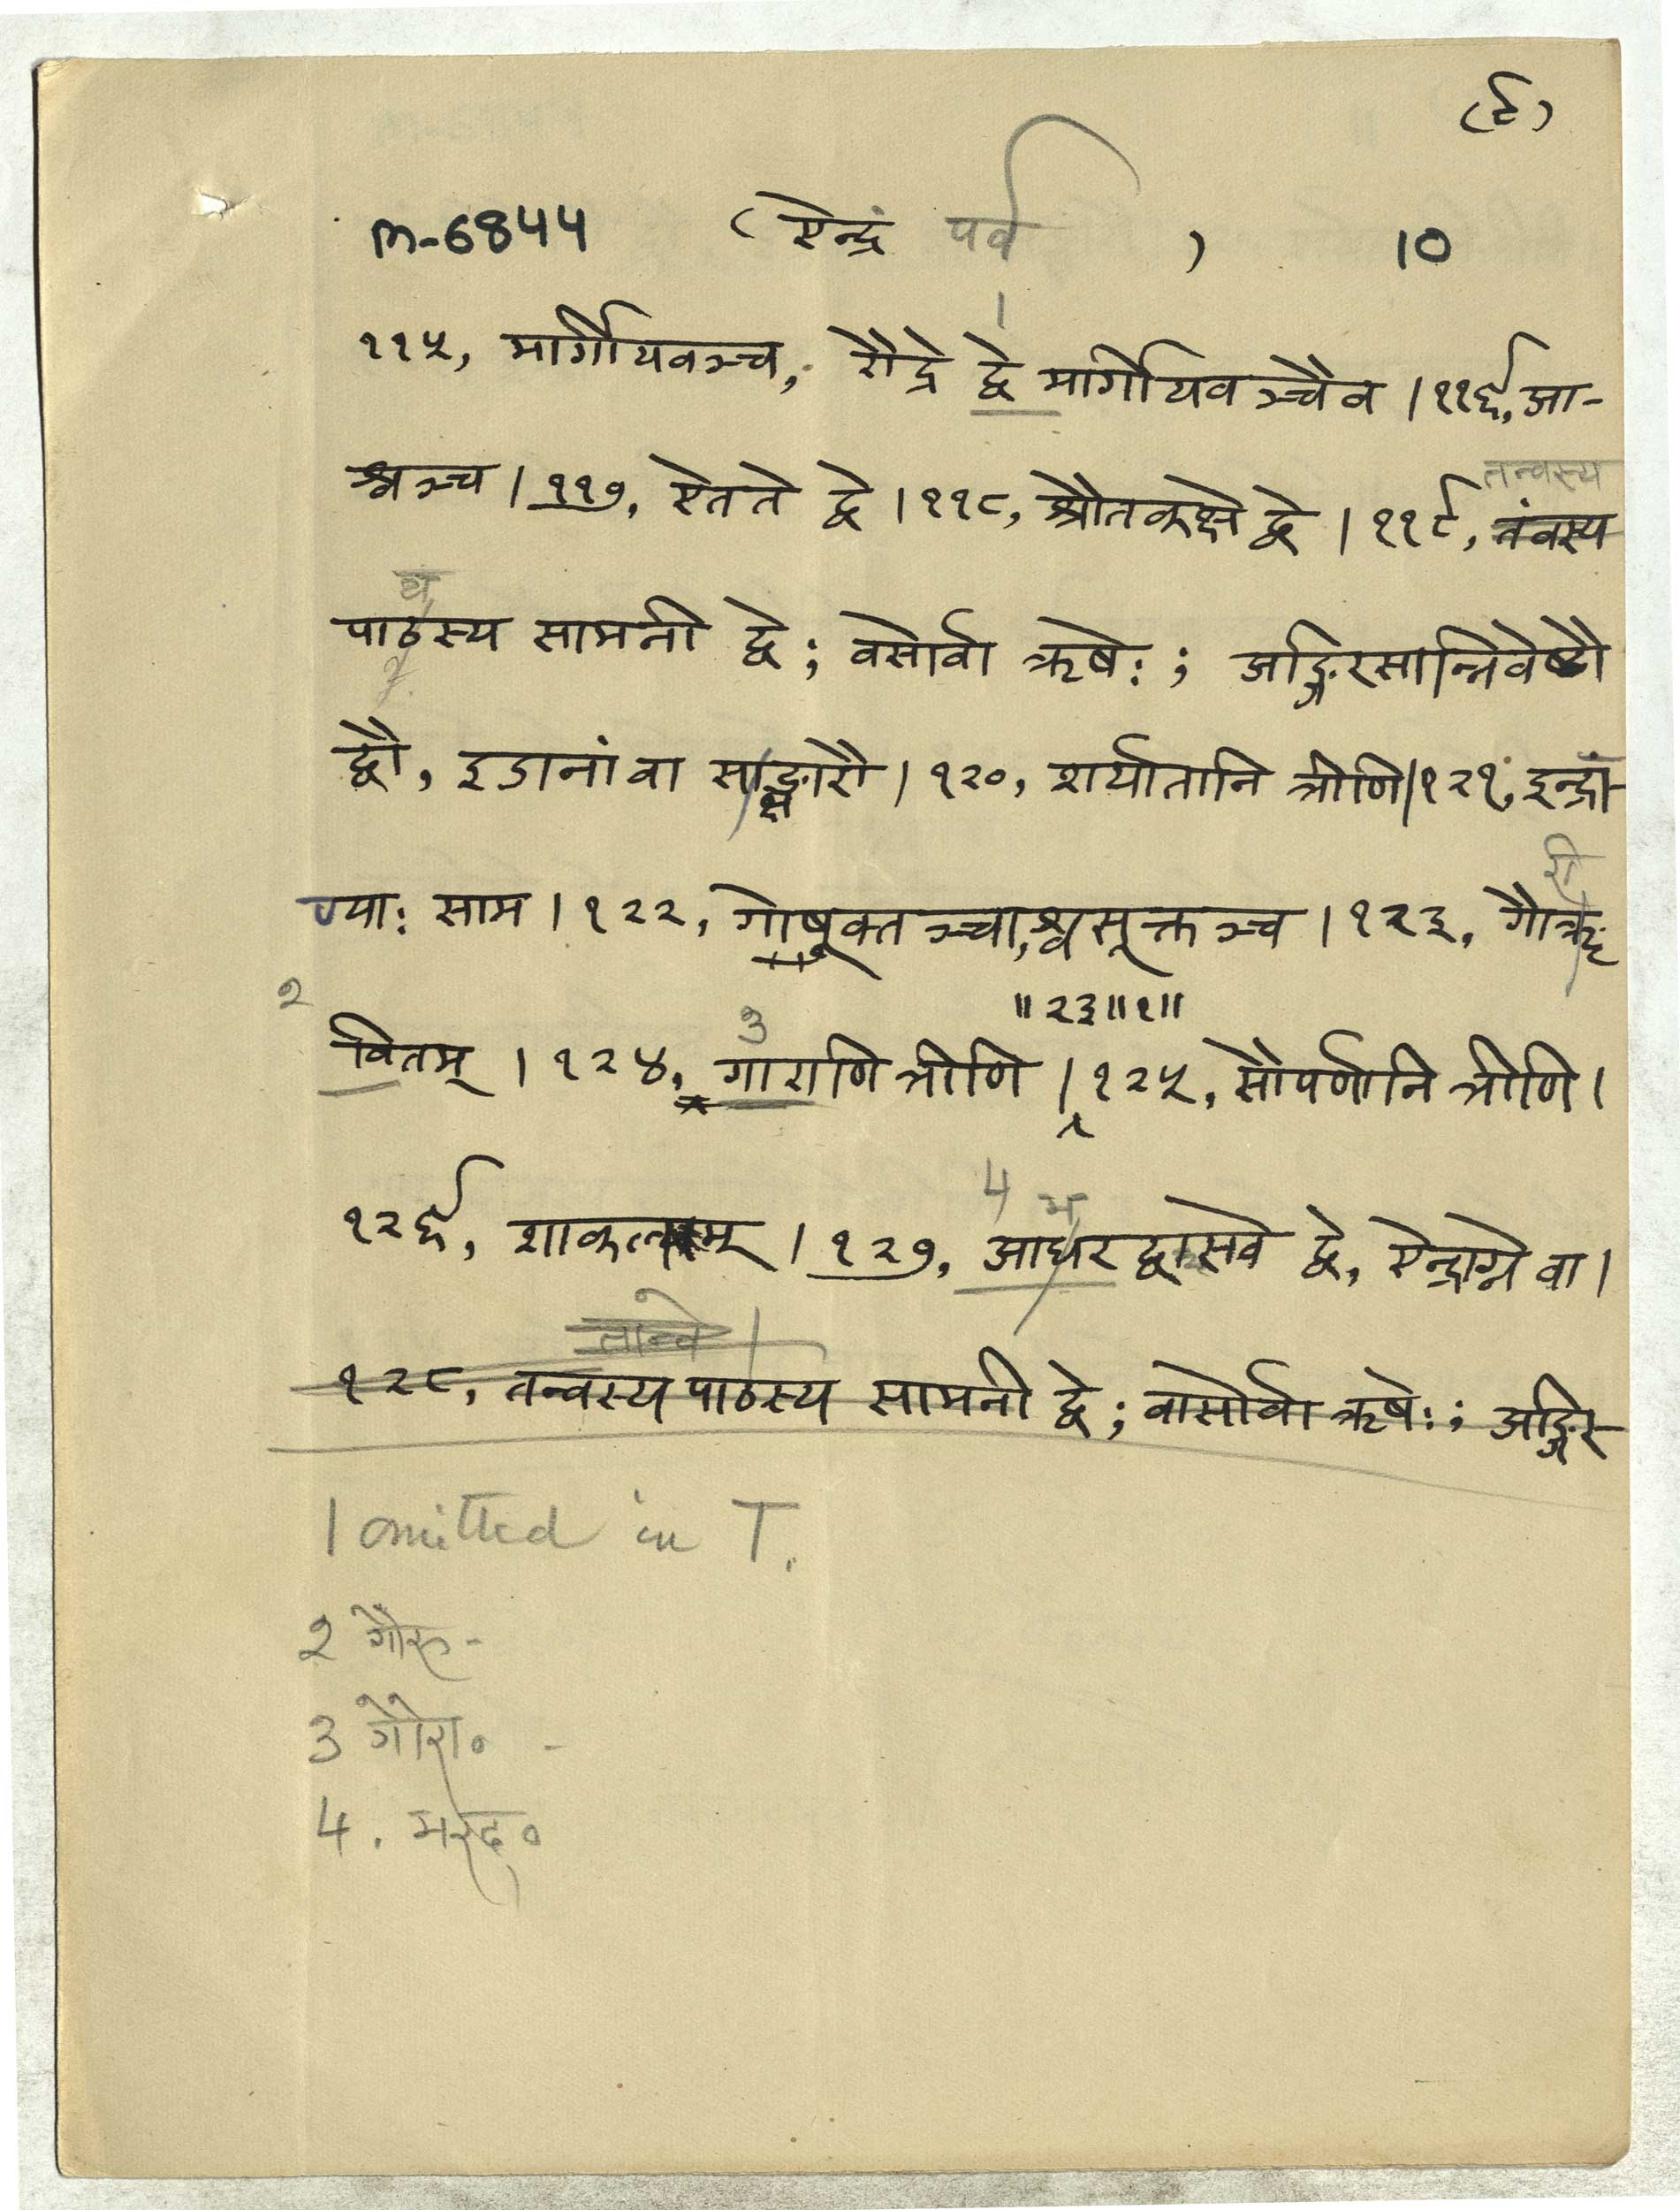 (९)
m-6844 (ऐन्द्रं पर्व ) 10
1
११५, मार्गीयवञ्च, रौद्रे द्वे मार्गीयवञ्चैव । ११६, आ-
तन्वस्य
श्वञ्च । ११७, ऐतते द्वे । ११८, श्रौतकक्षे द्वे । ११९, तंवस्य
पाठस्य सामनी द्वे ; वसोर्वा ऋषेः ; अङ्गिरसान्निवेष्टौ
द्वौ, इडानां वा संक्षारौ । १२०, शर्यातानि त्रीणि । १२१, इन्द्रा-
री
ण्याः साम । १२२, गोषूक्तञ्चा,श्वसूक्तञ्च । १२३, गौऋ
॥२३॥१॥
2 3
वितम् । १२४, गाराणि त्रीणि । १२५, सौपर्णानि त्रीणि ।
4 भ
१२६, शाकलम् । १२७, आधरद्वासवे द्वे, ऐन्द्राग्ने वा ।
तान्वे
१२८, तन्वस्य पाठस्य सामनी द्वे ; वासोर्वा ऋषेः ; अङ्गिर-
1 omitted in T.
2 गौरु-
3 गौरा० -
4. भरद०